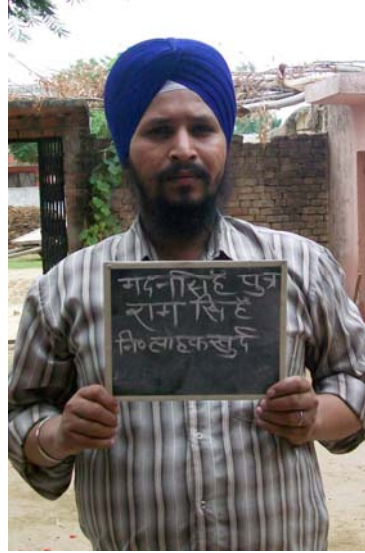 मदनसिहॅ पुत्र
राम सिहॅ
नि०लोहकखुर्द